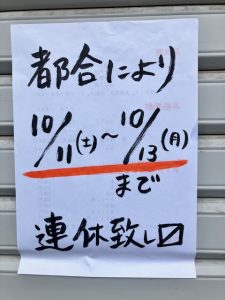 都合により
10/11(土)～10/13(月)
まで
連休致し〼